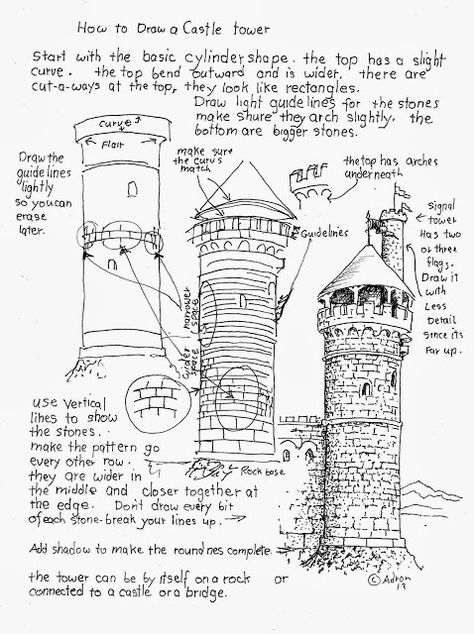 How to Draw a Castle tower
Start with the basic cylinder shape. the top has a slight
curve. the top bend outward and is wider. there are
cut-a-ways at the top, they look like rectangles.
Draw light guide lines for the stones
make shure they arch slightly. the
bottom are bigger stones.
Curve
Flair
Draw the
guide lines
lightly
so you can
erase
later.
make sure
the curvs
match
the top has arches
underneath
Guidelines
Signal
tower
Has two
or three
flags.
Draw it
with
Less
Detail
Since its
far up.
narrower
space
wider
space
use vertical
lines to show
the stones.
make the pattern go
every other row.
they are wider in
the middle and closer together at
the edge. Dont draw every bit
of each stone-break your lines up.
Rock base
Add shadow to make the roundnes complete.
the tower can be by itself on a rock or
connected to a castle or a bridge.
© Adron
13